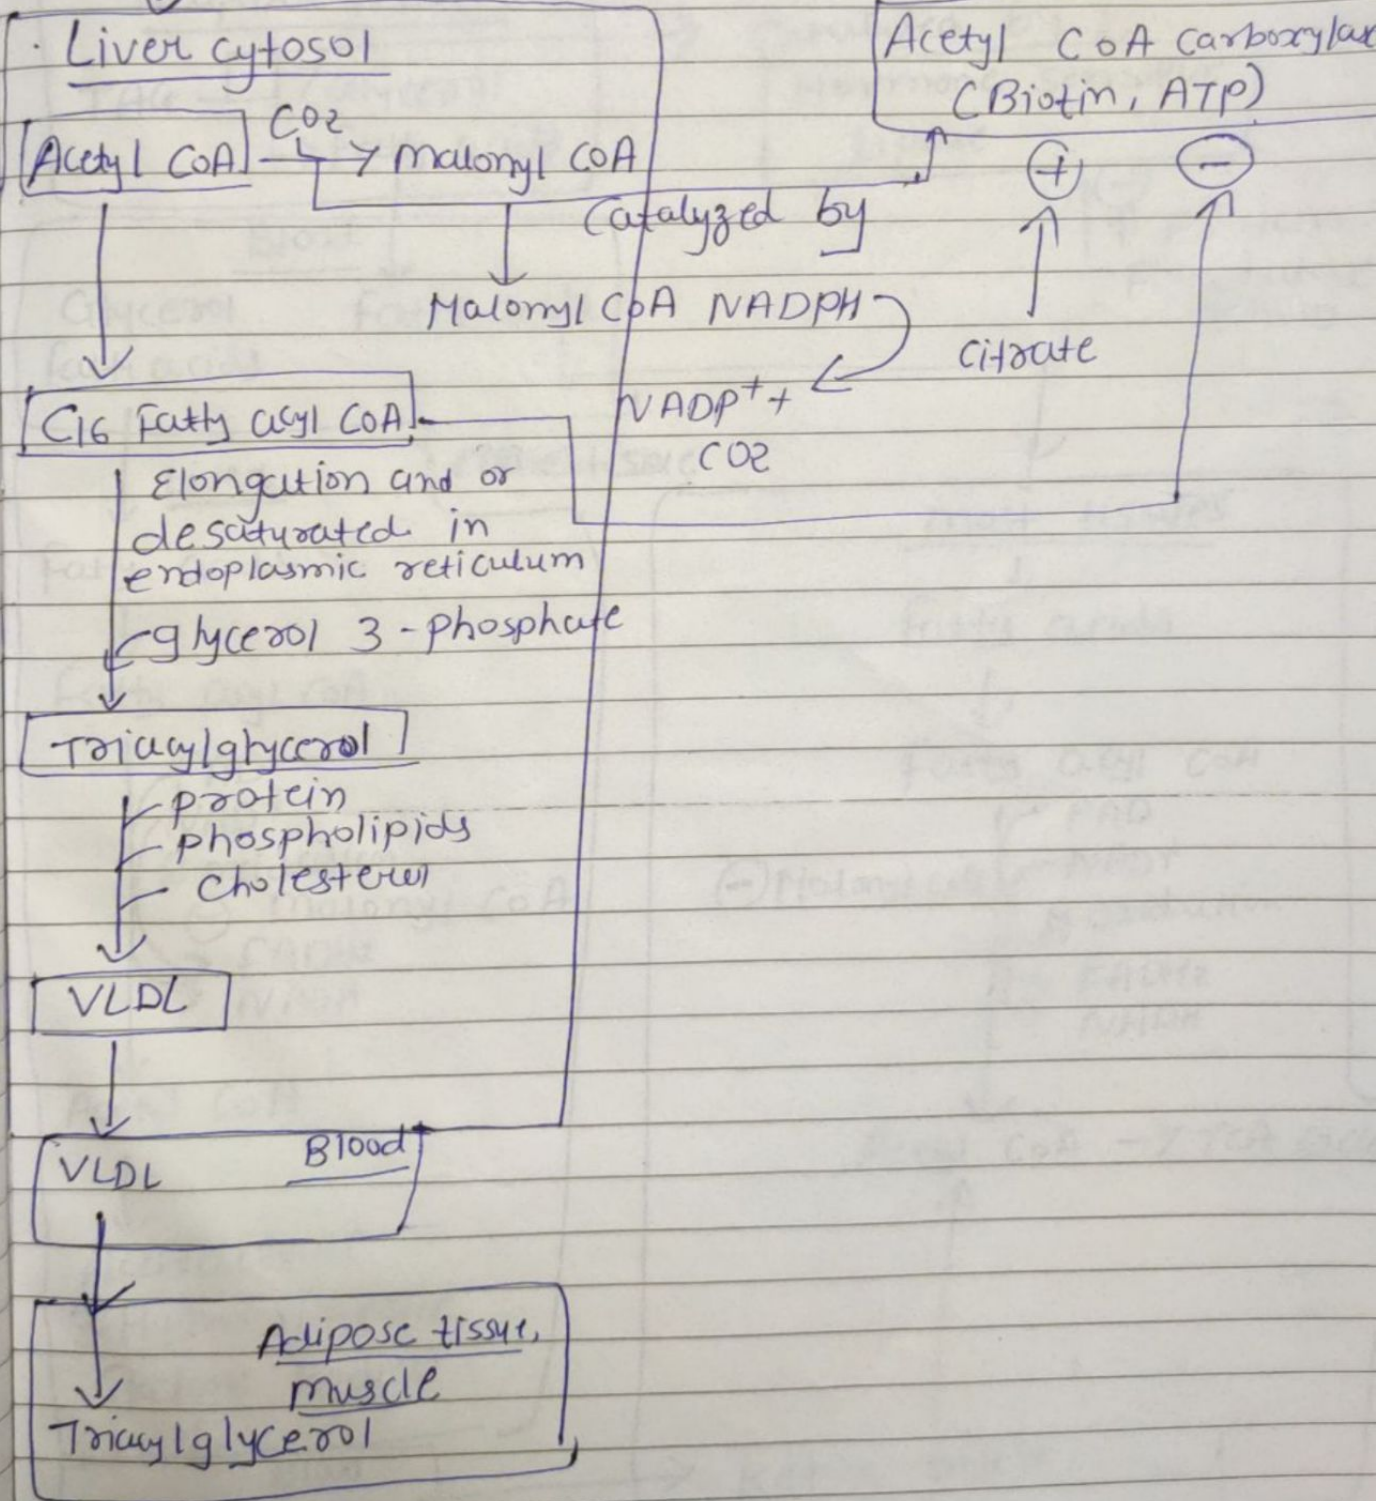 Liver cytosol
Acetyl CoA carboxylas
(Biotin, ATP)
Acetyl CoA → CO2 Malonyl CoA
+ -
Catalyzed by
Malonyl CoA NADPH
citrate
NADP+ +
CO2
C16 Fatty acyl CoA
Elongation and or
desaturated in
endoplasmic reticulum
glycerol 3-phosphate
Triacylglycerol
protein
phospholipids
cholesterol
VLDL
Blood
VLDL
Adipose tissue,
muscle
Triacylglycerol